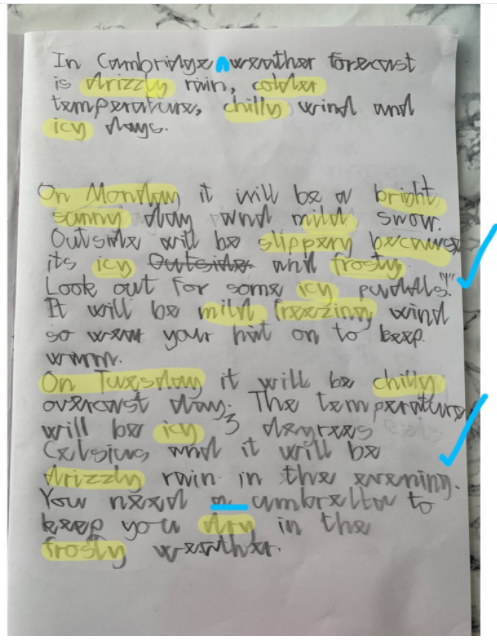 In Cambridge weather forecast
is drizzly rain, colder
temperature, chilly wind and
icy days.
On Monday it will be a bright
sunny day and mild snow.
Outside will be slippery because
its icy Outside and frosty.
Look out for some icy puddls.
It will be mild freezing wind
so wear your hat on to keep
warm.
On Tuesday it will be chilly
overcast day. The temperature
will be icy 3 degrees
Celsius, and it will be
drizzly rain in the evening.
You need a umbrella to
keep you dry in the
frosty weather.